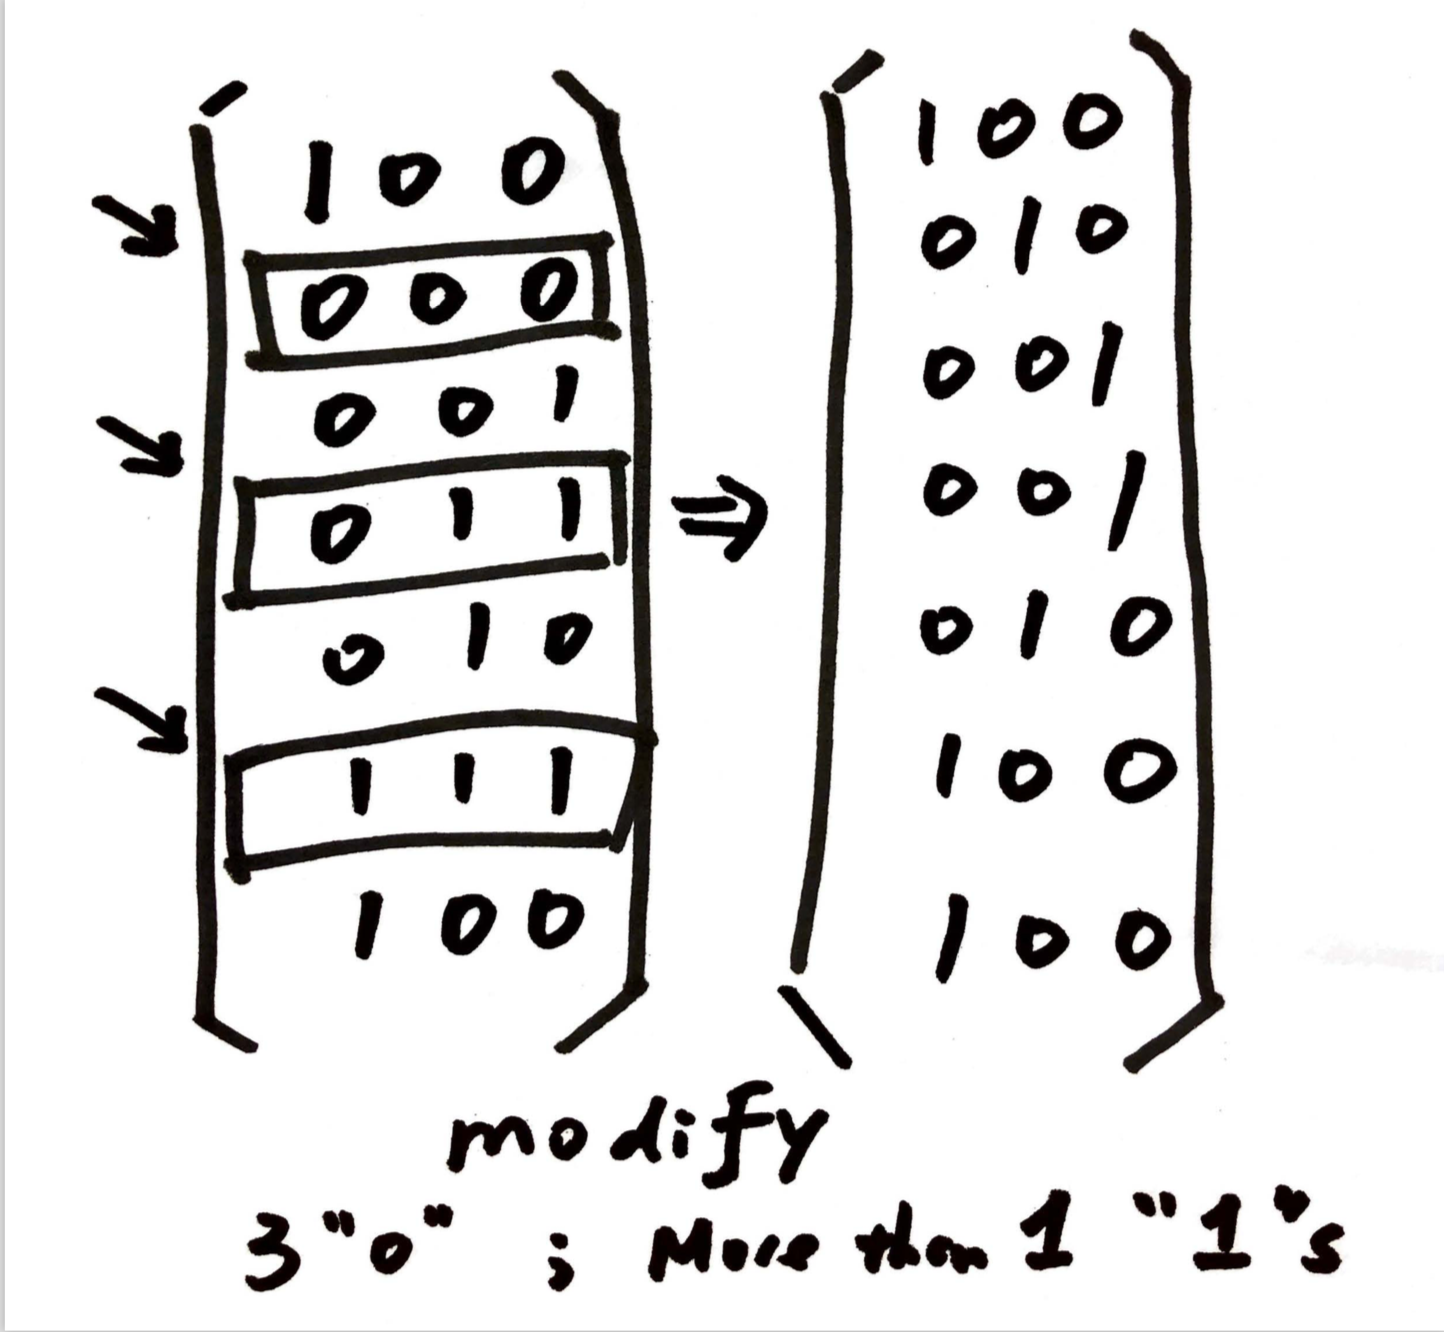 1 0 0
0 0 0
0 0 1
0 1 1
0 1 0
1 1 1
1 0 0
⇒
1 0 0
0 1 0
0 0 1
0 0 1
0 1 0
1 0 0
1 0 0
modify
3 "0" ; More than 1 "1"s